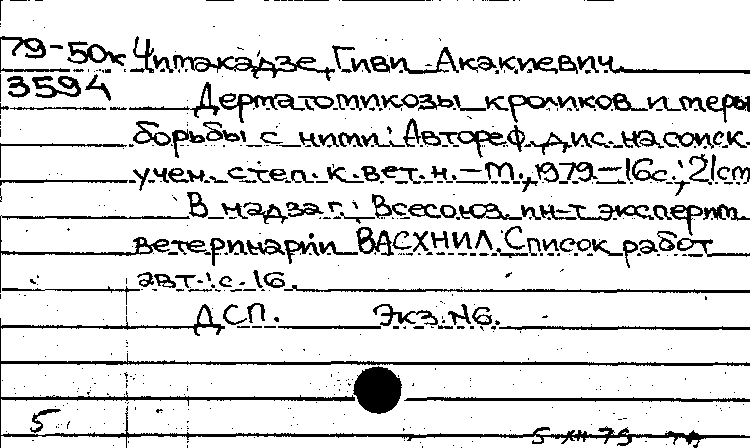 79-50к Читакадзе, Гиви Акакиевич.
3594
Дерматомикозы кроликов и меры
борьбы с ними: Автореф. дис. на соиск.
учен. степ. к. вет. н. - М., 1979 - 16с.; 21см
В надзаг.: Всесоюз. ин-т эксперим.
ветеринарии ВАСХНИЛ. Список работ
авт.: с. 16.
ДСП. Экз. №6.
5
5 XII 79